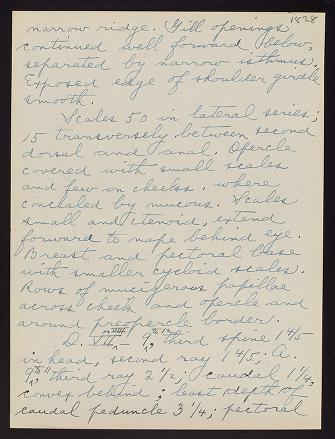 1828
narrow ridge. Gill openings
continued well forward below,
separated by narrow isthmus.
Exposed edge of shoulder girdle
smooth.
Scales 50 in lateral series;
15 transversely between second
dorsal and anal. Opercle
covered with small scales
and few on cheeks, where
concealed by mucous. Scales
small and ctenoid, extend
forward to nape behind eye.
Breast and pectoral base
with smaller cycloid scales.
Rows of mucigerous papillae
across cheek and opercle and
around preopercle border.
D. third spine 1 4/5
in head, second ray 1 4/5; A.
third ray 2 1/2; caudal 1 1/4,
convex behind; least depth of
caudal peduncle 3 1/4; pectoral